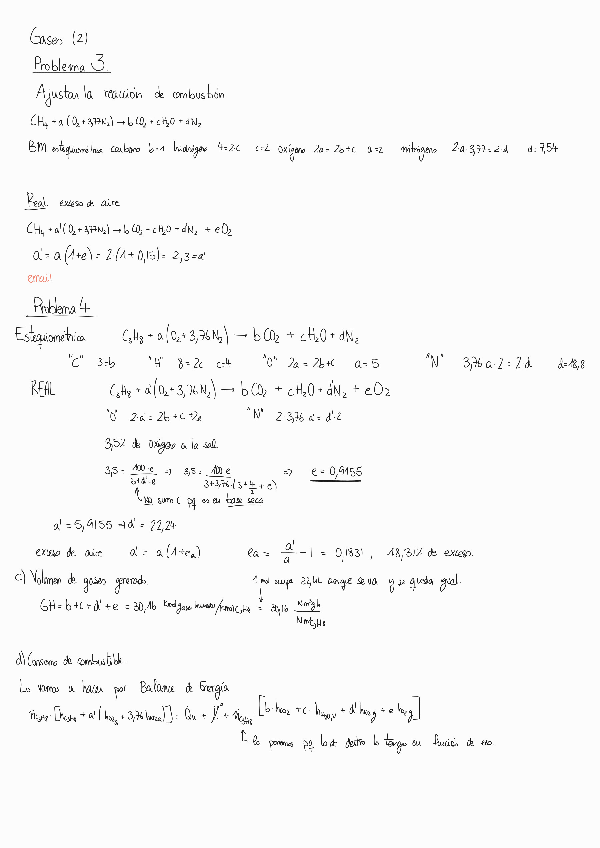 Gases (2)
Problema 3.
Ajustar la reacción de combustión
CH₄ + a(O₂+3,77N₂) → bCO₂ + cH₂O + dN₂
BM estequiométrica carbono b=1 hidrógeno 4=2·c c=2 oxígeno 2a=2b+c a=2 nitrógeno 2·a·3,77=2·d d=7,54
Real exceso de aire
CH₄ + a'(O₂+3,77N₂) → bCO₂ + cH₂O + dN₂ + eO₂
a' = a(1+e) = 2(1+0,15) = 2,3 = a'
email
Problema 4
Estequiométrica C₃H₈ + a(O₂+3,76N₂) → bCO₂ + cH₂O + dN₂
"C" 3=b "H" 8=2c c=4 "O" 2a=2b+c a=5 "N" 3,76·a·2=2·d d=18,8
REAL C₃H₈ + a'(O₂+3,76N₂) → bCO₂ + cH₂O + d'N₂ + eO₂
"O" 2·a=2b+c+2e "N" 2·3,76·a'=d'·2
3,5% de oxígeno a la sal.
3,5 = 100·e / b+d'+e => 3,5 = 100·e / 3+3,76·(3+4/2+e) => e=0,9155
No sumo c pq es en base seca
a'=5,9155 → d'=22,24
exceso de aire a'=a(1+eₐ) eₐ = a'/a - 1 = 0,1831, 18,31% de exceso.
c) Volumen de gases generado 1 mol ocupa 22,4L aunque se va y se queda igual.
GH = b+c+d'+e = 30,16 kmol gases húmedos/kmol C₃H₈ = 30,16 Nm³gh / Nm³C₃H₈
d) Consumo de combustible
Lo vamos a hacer por Balance de Energía
ṅC₃H₈·[hC₃H₈ + a'(hO₂g + 3,76hN₂g)] = Qu + + ṅC₃H₈ [b·hCO₂ + c·hH₂O,v + d'hN₂g + e hO₂g]
lo ponemos pq lo de dentro lo tengo en función de eso